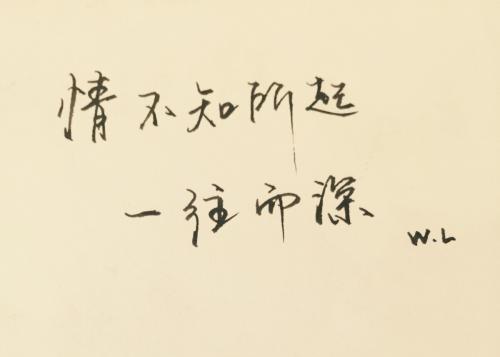 情不知所起
一往而深
W.L